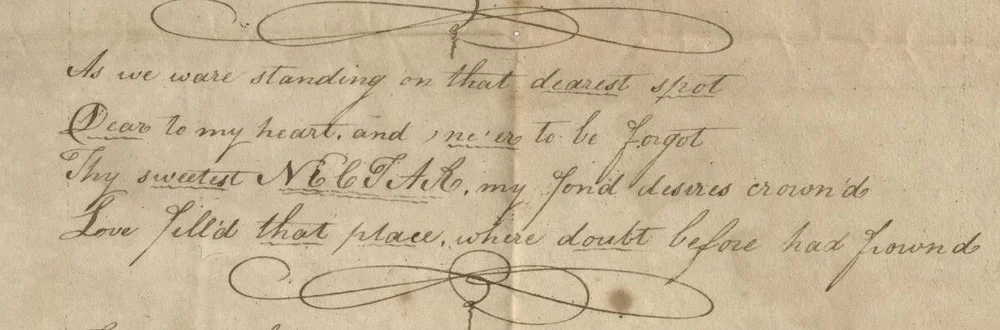 As we ware standing on that dearest spot
Dear to my heart. and ne'er to be forgot
Thy sweetest NECTAR, my fond desires crown'd
Love fill'd that place, where doubt before had frownd